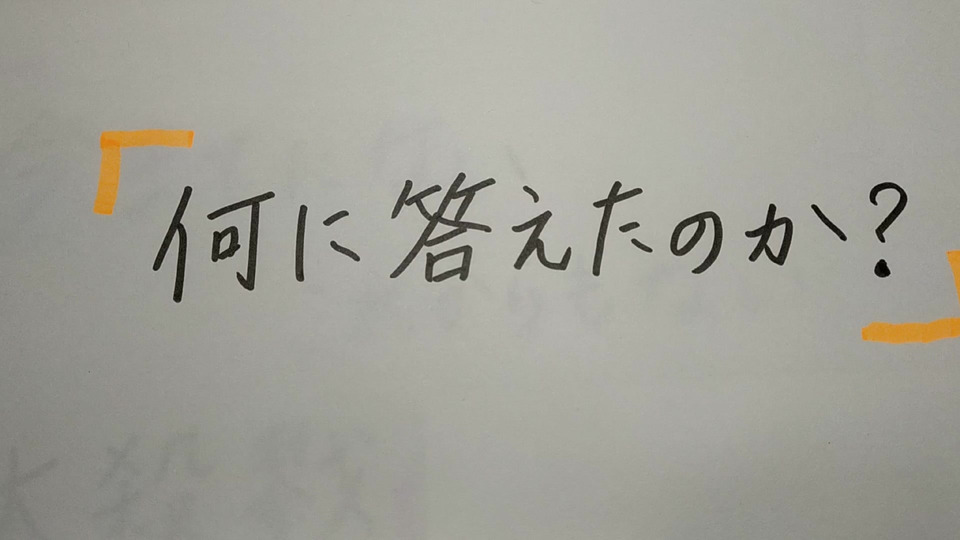 「何に答えたのか?」